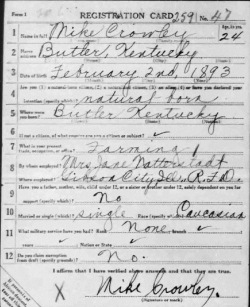 Form 1
REGISTRATION CARD 259 No. 47
1 Name in full Mike Crowley Age, in yrs. 24
2 Home address Butler, Kentucky
3 Date of birth February 2nd, 1893
4 Are you (1) a natural-born citizen, (2) a naturalized citizen, (3) an alien, (4) or have you declared your
intention (specify which)? natural born
5 Where were you born? Butler Kentucky
6 If not a citizen, of what country are you a citizen or subject?
7 What is your present trade, occupation, or office? Farming
8 By whom employed? Mrs Jane
Where employed? Gibson City Ill. R.F.D.
9 Have you a father, mother, wife, child under 12, or a sister or brother under 12, solely dependent on you for
support (specify which)? No
10 Married or single (which)? single Race (specify which)? Caucasian
11 What military service have you had? Rank None branch
years Nation or State
12 Do you claim exemption from draft (specify grounds)? No.
I affirm that I have verified above answers and that they are true.
X Mike Crowley.
(Signature or mark)